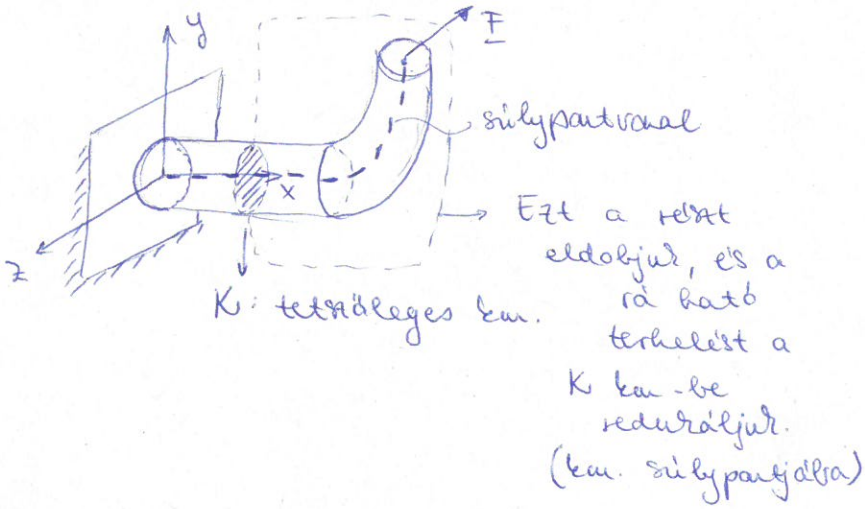 y
F
súlypontvonal
x
z
Ezt a részt
eldobjuk, és a
rá ható
terhelést a
K km-be
redukáljuk.
(km. súlypontjába)
K: tetszőleges km.